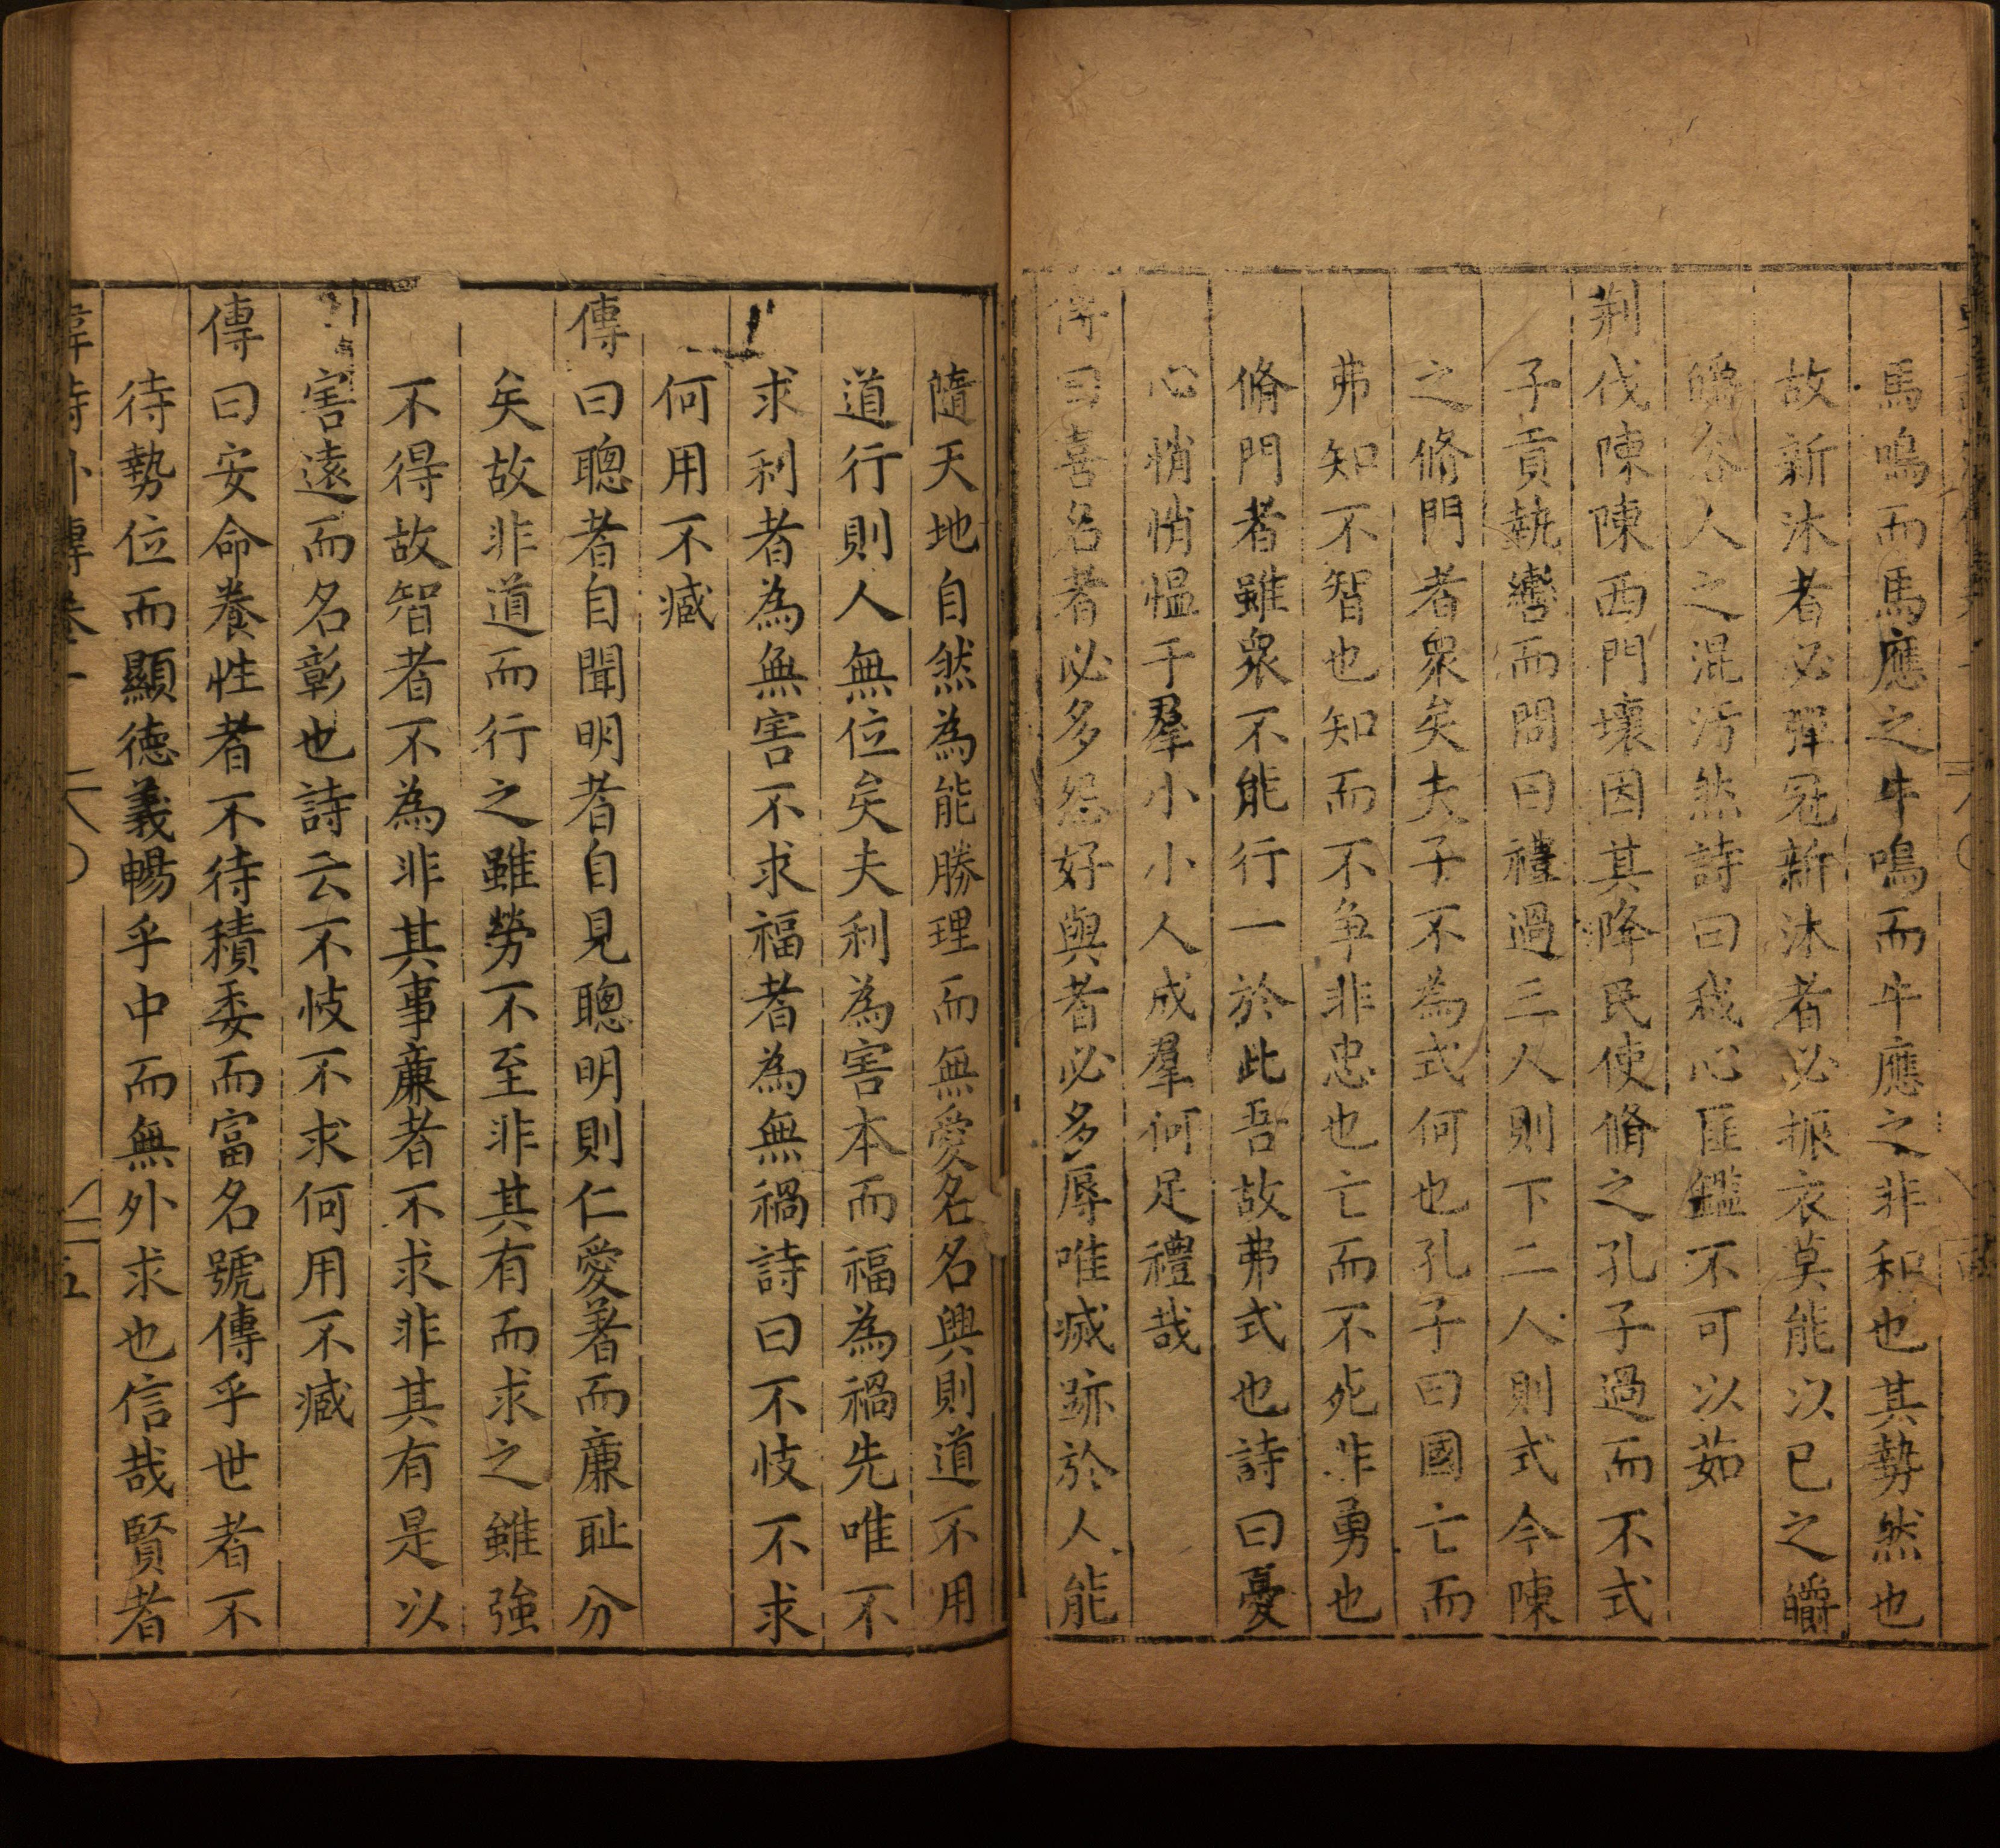 馬鳴而馬應之牛鳴而牛應之非和也其勢然也
故新沐者必彈冠新沐者必振衣莫能以已之皭
皭容人之混汚然詩曰我心匪鑑不可以茹
荆伐陳陳西門壞因其降民使脩之孔子過而不式
子貢執轡而問曰禮過三人則下二人則式今陳
之修門者衆矣夫子不為式何也孔子曰國亡而
弗知不智也知而不爭非忠也亡而不死非勇也
脩門者雖衆不能行一於此吾故弗式也詩曰憂
心悄悄慍于羣小小人成羣何足禮哉
傳曰喜名者必多怨好與者必多辱唯滅跡於人能
隨天地自然為能勝理而無愛名名興則道不用
道行則人無位矣夫利為害本而福為禍先唯不
求利者為無害不求福者為無禍詩曰不忮不求
何用不臧
傳曰聰者自聞明者自見聰明則仁愛著而廉恥分
矣故非道而行之雖勞不至非其有而求之雖強
不得故智者不為非其事廉者不求非其有是以
害遠而名彰也詩云不忮不求何用不臧
傳曰安命養性者不待積委而富名號傳乎世者不
待勢位而顯德義暢乎中而無外求也信哉賢者
詩外傳卷一 五